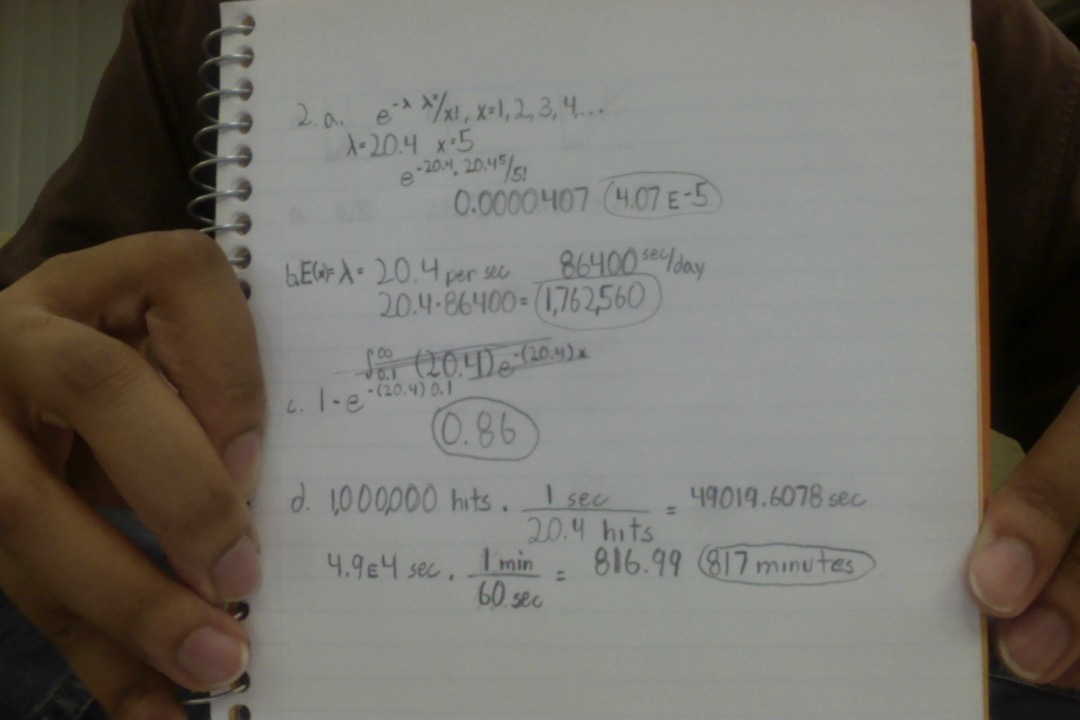 2. a. e^-λ λ^x/x!, x=1, 2, 3, 4...
λ=20.4 x=5
e^-20.4 · 20.4^5/5!
0.0000407 4.07 E-5
b. E(x)= λ = 20.4 per sec 86400 sec/day
20.4·86400= 1,762,560
∫_0.1^∞ (20.4)e^-(20.4)x
c. 1-e^-(20.4)0.1
0.86
d. 1,000,000 hits · 1 sec / 20.4 hits = 49019.6078 sec
4.9E4 sec · 1 min / 60 sec = 816.99 817 minutes